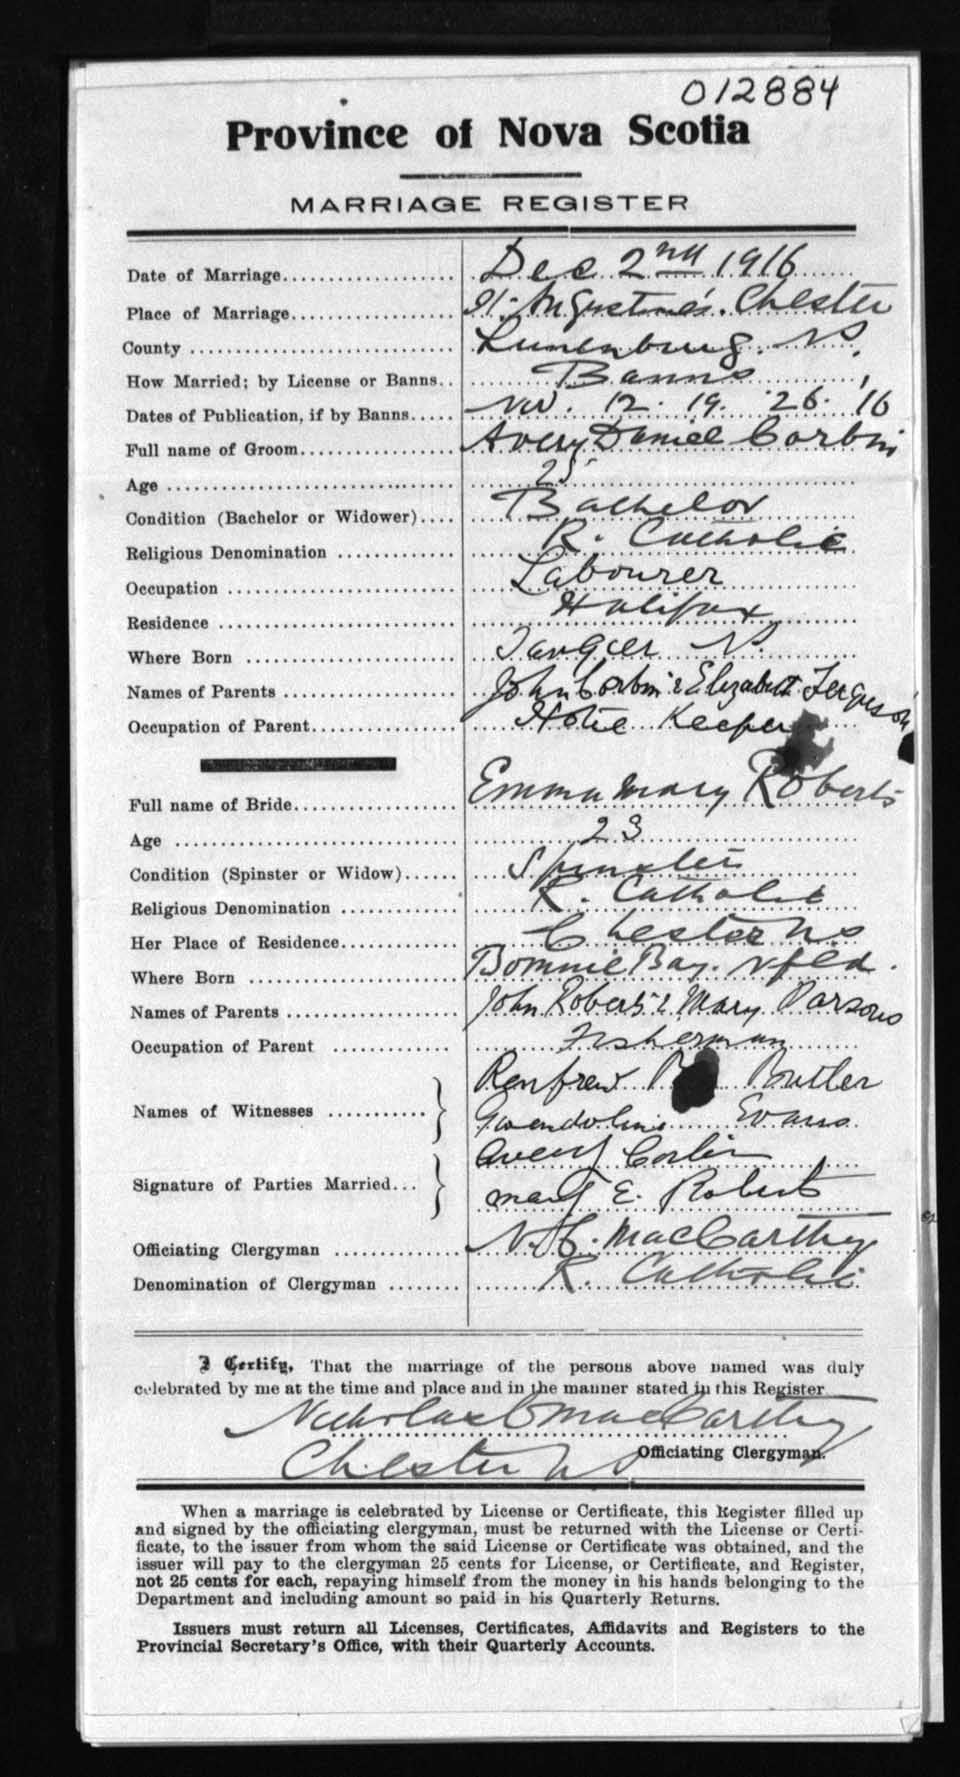 012884
Province of Nova Scotia
MARRIAGE REGISTER
Date of Marriage.................... Dec 2nd 1916
Place of Marriage................... St. Augustine's. Chester
County .............................. Lunenburg. N.S.
How Married; by License or Banns.. Banns
Dates of Publication, if by Banns..... Nov. 12. 19. 26. 16
Full name of Groom.................. Avery Daniel Corbin
Age ................................. 25
Condition (Bachelor or Widower).... Bachelor
Religious Denomination .............. R. Catholic
Occupation ........................... Labourer
Residence ............................ Halifax
Where Born ......................... Tangier N.S.
Names of Parents .................... John Corbin & Elizabeth Ferguson
Occupation of Parent................. Hotel Keeper
Full name of Bride................... Emma Mary Roberts
Age ................................. 23
Condition (Spinster or Widow)...... Spinster
Religious Denomination ............. R. Catholic
Her Place of Residence.............. Chester N.S
Where Born ........................ Bonnie Bay. Nfld.
Names of Parents .................... John Roberts & Mary Parsons
Occupation of Parent .............. Fisherman
Names of Witnesses ........... } Renfrew Butler
Gwendoline Evans
Signature of Parties Married... } Avery Corbin
Mary E. Roberts
Officiating Clergyman ............... N. C. MacCarthy
Denomination of Clergyman ........ R. Catholic
I Certify, That the marriage of the persons above named was duly
celebrated by me at the time and place and in the manner stated in this Register
Nicholas C MacCarthy
Chester NS Officiating Clergyman.
When a marriage is celebrated by License or Certificate, this Register filled up
and signed by the officiating clergyman, must be returned with the License or Certi-
ficate, to the issuer from whom the said License or Certificate was obtained, and the
issuer will pay to the clergyman 25 cents for License, or Certificate, and Register,
not 25 cents for each, repaying himself from the money in his hands belonging to the
Department and including amount so paid in his Quarterly Returns.
Issuers must return all Licenses, Certificates, Affidavits and Registers to the
Provincial Secretary's Office, with their Quarterly Accounts.